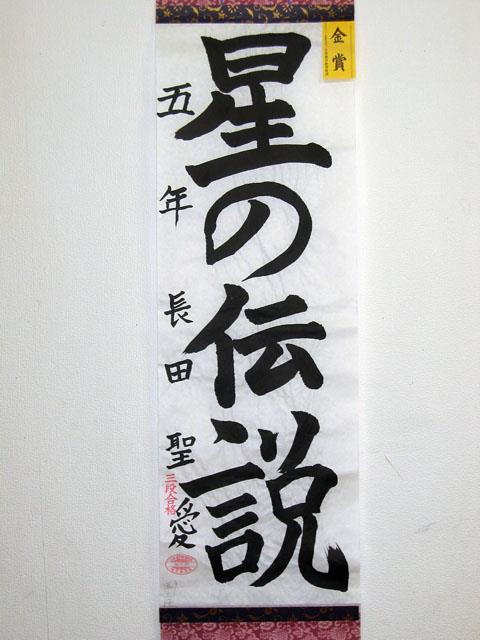 金賞
星の伝説
五年 長田聖愛
三段合格